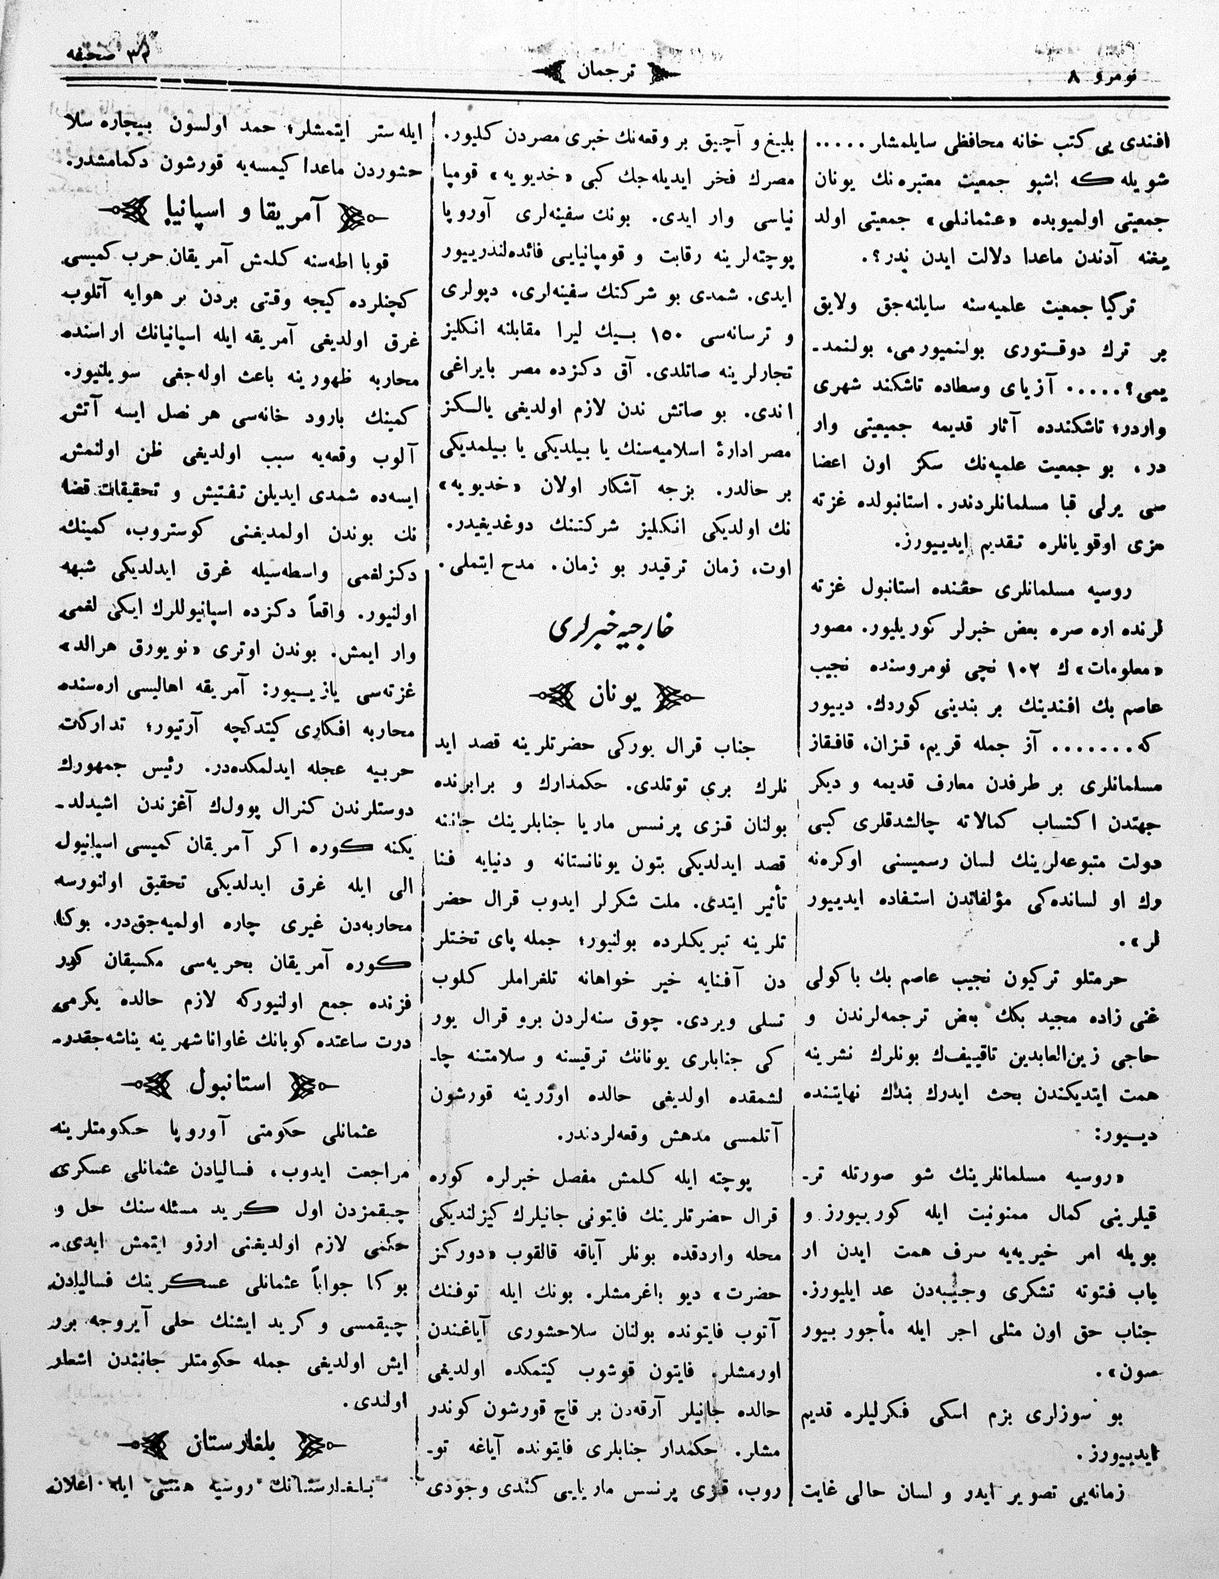 نومرو ٨
ترجمان
صحیفه
افندی یی کتب خانه محافظی سایلمشلر.....
شویله که اشبو جمعیت معتبره‌نك یونان
جمعیتی اولمیوبده «عثمانلی» جمعیتی اولد
یغنه آدندن ماعدا دلالت ایدن ندر؟.
ترکیا جمعیت علمیه‌سنه سایلنه‌جق ولایق
بر ترك دوقتوری بولنمیورمی، بولنمد-
یمی؟..... آزیای وسطاده تاشکند شهری
واردر؛ تاشکندده آثار قدیمه جمیعیتی وار
در، بو جمعیت علمیه‌نك سکز اون اعضا
سی یرلی قبا مسلمانلردندر. استانبولده غزته
مزی اوقویانلره تقدیم ایدییورز.
روسیه مسلمانلری حقنده استانبول غزته
لرنده اره صره بعض خبرلر کوریلیور. مصور
«معلومات» ك ١٠٢ نچی نومروسنده نجیب
عاصم بك افندینك بر بندینی کوردك. دییور
که....... آز جمله قریم، قزان، قافقاز
مسلمانلری بر طرفدن معارف قدیمه و دیکر
جهتدن اکتساب کمالاته چالشدقلری کبی
دولت متبوعه‌لرینك لسان رسمیسنی اوکره‌نه
رك او لسانده‌کی مؤلفاتدن استفاده ایدییور
لر».
حرمتلو ترکیون نجیب عاصم بك باکولی
غنی زاده مجید بکك بعض ترجمه‌لرندن و
حاجی زین‌العابدین تاقییف‌ك بونلرك نشرینه
همت ایتدیکندن بحث ایدرك بندك نهایتنده
دییور:
«روسیه مسلمانلرینك شو صورتله تر-
قیلرینی کمال ممنونیت ایله کورییورز و
بویله امر خیریه‌یه صرف همت ایدن ار
باب فتوته تشکری وجیبه‌دن عد ایلیورز.
جناب حق اون مثلی اجر ایله مأجور بیور
سون».
بو سوزلری بزم اسکی فکرلیلره قدیم
ایدییورز.
زمانه‌یی تصویر ایدر و لسان حالی غایت
بلیغ و آچیق بر وقعه‌نك خبری مصردن کلیور.
مصرك فخر ایدیله‌جك کبی «خدیویه» قومپا
نیاسی وار ایدی. بونك سفینه‌لری آوروپا
پوچته‌لرینه رقابت و قومپانیایی فائده‌لندرییور
ایدی. شمدی بو شرکتك سفینه‌لری، دپولری
و ترسانه‌سی ١٥٠ بیك لیرا مقابلنه انکلیز
تجارلرینه صاتلدی. آق دکزده مصر بایراغی
اندی. بو صاتش ندن لازم اولدیغی یالکز
مصر ادارۀ اسلامیه‌سنك یا بیلدیکی یا بیلمدیکی
بر حالدر. بزجه آشکار اولان «خدیویه»
نك اولدیکی انکلیز شرکتنك دوغدیغیدر.
اوت، زمان ترقیدر بو زمان. مدح ایتملی.
خارجیه خبرلری
یونان
جناب قرال یورکی حضرتلرینه قصد اید
نلرك بری توتلدی. حکمدارك و برابرنده
بولنان قزی پرنسس ماریا جنابلرینك جاننه
قصد ایدلدیکی بتون یونانستانه و دنیایه فنا
تأثیر ایتدی. ملت شکرلر ایدوب قرال حضر
تلرینه تبریکلرده بولنیور؛ جمله پای تختلر
دن آفنایه خیر خواهانه تلغراملر کلوب
تسلی ویردی. چوق سنه‌لردن برو قرال یور
کی جنابلری یونانك ترقیسنه و سلامتنه چا-
لشمقده اولدیغی حالده اوزرینه قورشون
آتلمسی مدهش وقعه‌لردندر.
پوچته ایله کلمش مفصل خبرلره کوره
قرال حضرتلرینك فایتونی جانیلرك کیزلندیکی
محله واردقده بونلر آیاقه قالقوب «دورکز
حضرت» دیو باغرمشلر. بونك ایله توفنك
آتوب فایتونده بولنان سلاحشوری آیاغندن
اورمشلر. فایتون قوشوب کیتمکده اولدیغی
حالده جانیلر آرقه‌دن بر قاچ قورشون کوندر
مشلر. حکمدار جنابلری فایتونده آیاغه تو-
روب، قزی پرنسس ماریایی کندی وجودی
ایله ستر ایتمشلر؛ حمد اولسون بیچاره سلا
حشوردن ماعدا کیمسه‌یه قورشون دکمامشدر.
آمریقا و اسپانیا
قوبا اطه‌سنه کلمش آمریقان حرب کمیسی
کچنلرده کیجه وقتی بردن بر هوایه آتلوب
غرق اولدیغی آمریقه ایله اسپانیانك اراسنده
محاربه ظهورینه باعث اوله‌جغی سویلنیور.
کمینك بارود خانه‌سی هر نصل ایسه آتش
آلوب وقعه‌یه سبب اولدیغی ظن اولنمش
ایسه‌ده شمدی ایدیلن تفتیش و تحقیقات قضا
نك بوندن اولمدیغنی کوستروب، کمینك
دکزلغمی واسطه‌سیله غرق ایدلدیکی شبهه
اولنیور. واقعاً دکزده اسپانیوللرك ایکی لغمی
وار ایمش. بوندن اوتری «نویورق هرالد»
غزته‌سی یازییور: آمریقه اهالیسی اره‌سنده
محاربه افکاری کیتدکچه آرتیور؛ تدارکات
حربیه عجله ایدلمکده‌در. رئیس جمهورك
دوستلرندن کنرال پوول‌ك آغزندن اشیدلد-
یکنه کوره اکر آمریقان کمیسی اسپانیول
الی ایله غرق ایدلدیکی تحقیق اولنورسه
محاربه‌دن غیری چاره اولمیه‌جق‌در. بوکا
کوره آمریقان بحریه‌سی مکسیقان کور
فزنده جمع اولنیورکه لازم حالده یکرمی
درت ساعتده کوبانك غاوانا شهرینه یناشه‌جقدر.
استانبول
عثمانلی حکومتی آوروپا حکومتلرینه
مراجعت ایدوب، فسالیادن عثمانلی عسکری
چیقمزدن اول کرید مسئله‌سنك حل و
حکمی لازم اولدیغنی ارزو ایتمش ایدی.
بوکا جواباً عثمانلی عسکرینك فسالیادن
چیقمسی و کرید ایشنك حلی آیروجه برر
ایش اولدیغی جمله حکومتلر جانبندن اشعار
اولندی.
بلغارستان
بلغارستانك روسیه ایله اعلان